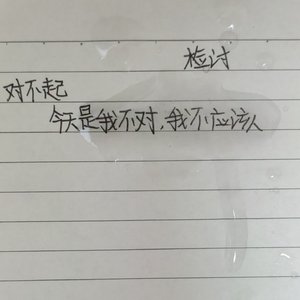 检讨
对不起
今天是我不对，我不应该